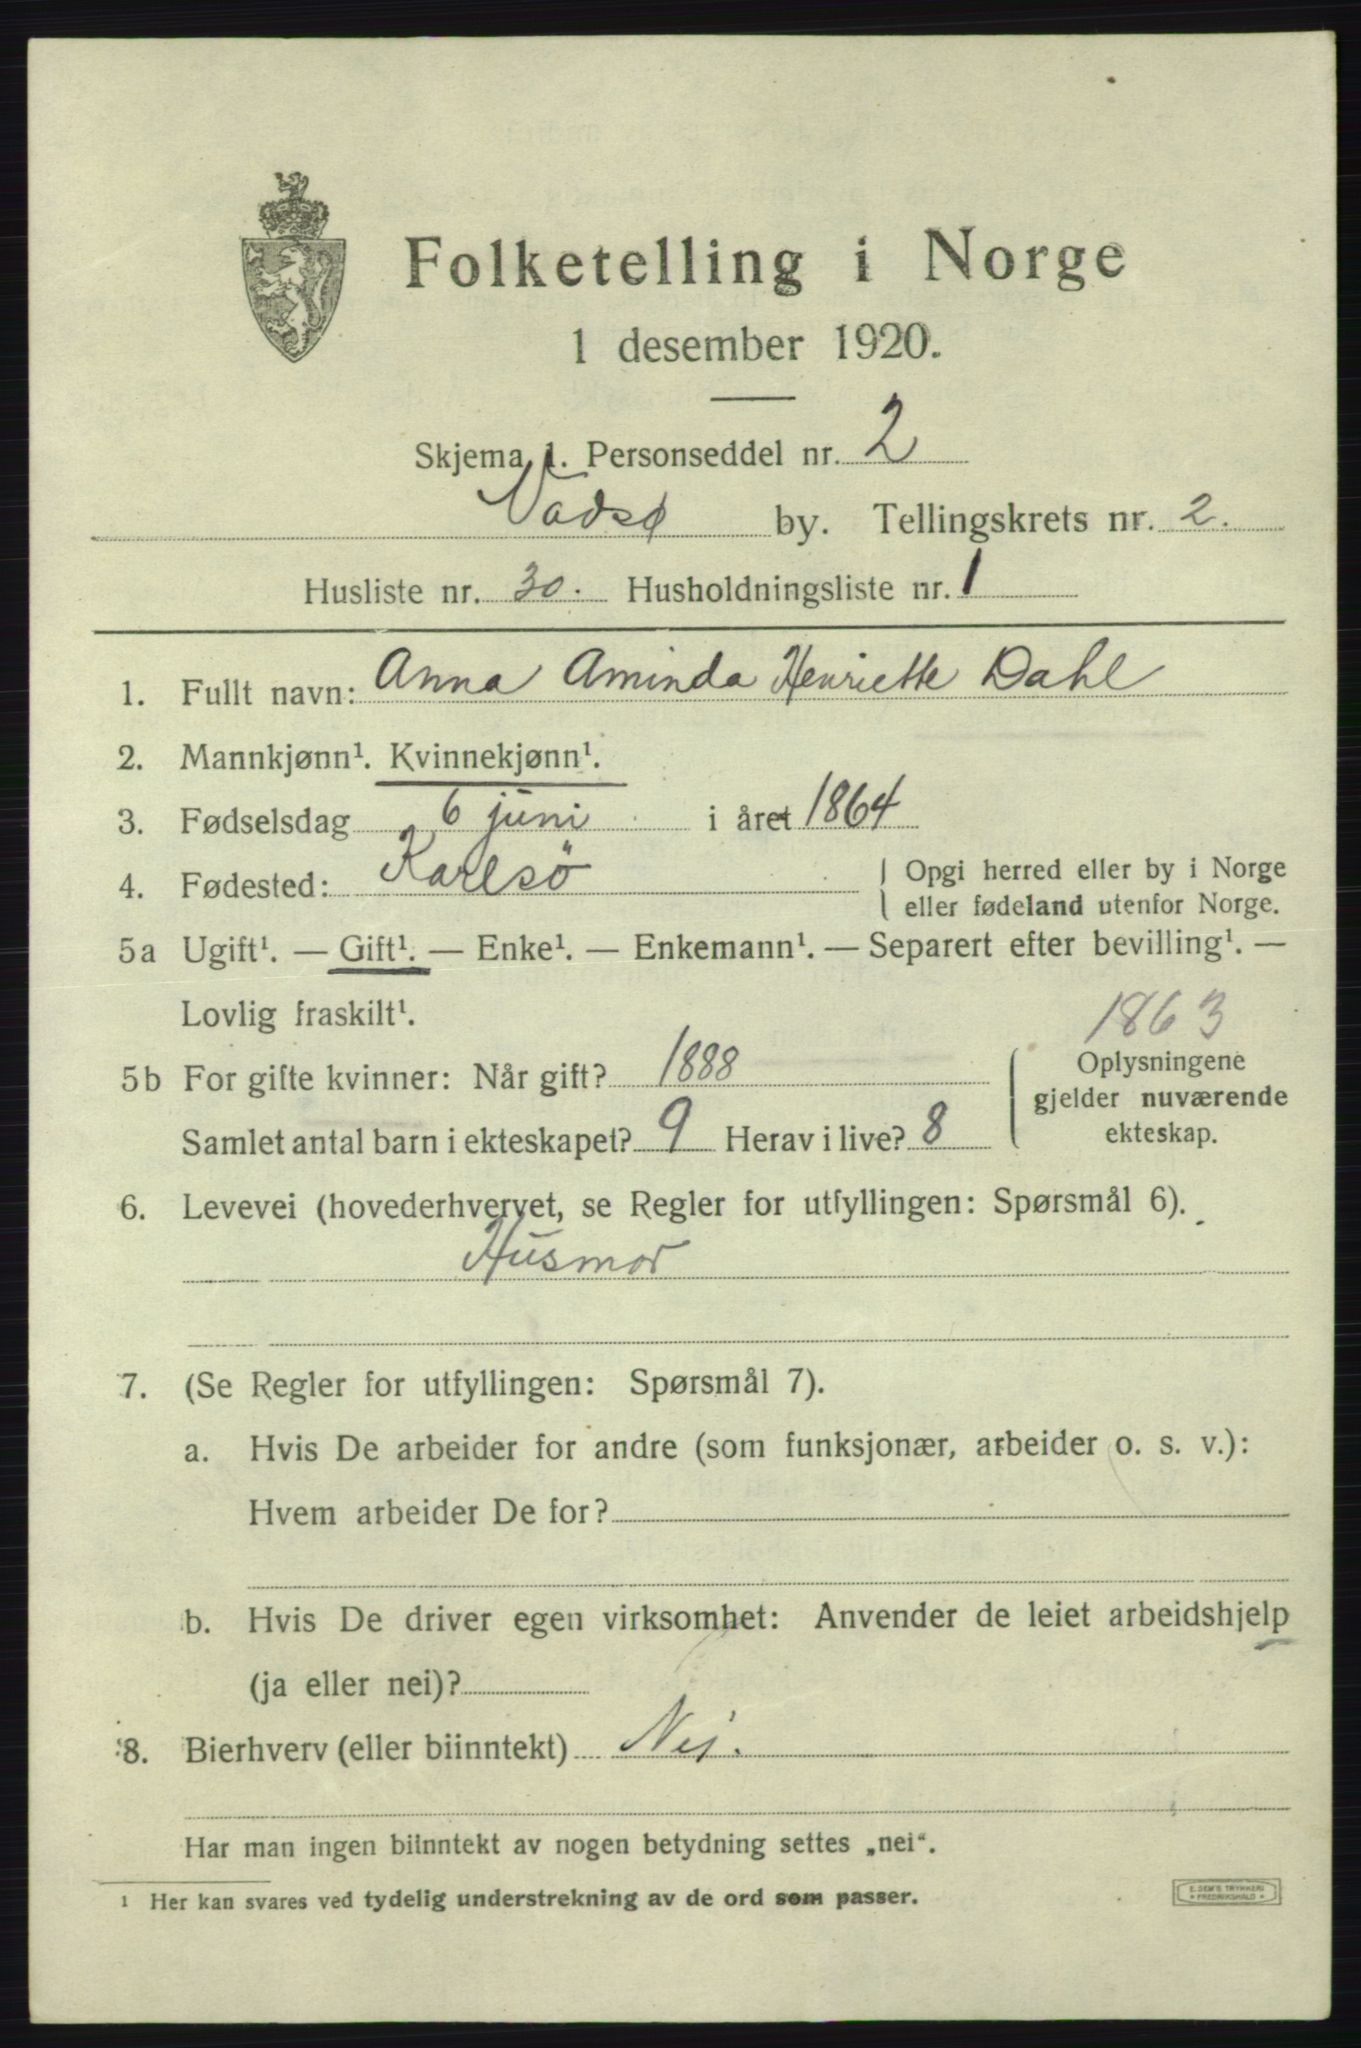 Folketelling i Norge
1 desember 1920.
Skjema 1. Personseddel nr. 2
Vadsø by. Tellingskrets nr. 2.
Husliste nr. 30. Husholdningsliste nr. 1
1. Fullt navn: Anna Aminda Henriette Dahl
2. Mannkjønn¹. Kvinnekjønn¹.
3. Fødselsdag 6 juni i året 1864
4. Fødested: Karlsö
Opgi herred eller by i Norge
eller fødeland utenfor Norge.
5a Ugift¹. — Gift¹. — Enke¹. — Enkemann¹. — Separert efter bevilling¹. —
Lovlig fraskilt¹.
1863
5b For gifte kvinner: Når gift? 1888
Samlet antal barn i ekteskapet? 9 Herav i live? 8
Oplysningene
gjelder nuværende
ekteskap.
6. Levevei (hovederhvervet, se Regler for utfyllingen: Spørsmål 6).
Husmor
7. (Se Regler for utfyllingen: Spørsmål 7).
a. Hvis De arbeider for andre (som funksjonær, arbeider o. s. v.):
Hvem arbeider De for?
b. Hvis De driver egen virksomhet: Anvender de leiet arbeidshjelp
(ja eller nei)?
8. Bierhverv (eller biinntekt) Nei.
Har man ingen biinntekt av nogen betydning settes „nei“.
1 Her kan svares ved tydelig understrekning av de ord som passer.
E. SEM'S TRYKKERI
* FREDRIKSHALD *